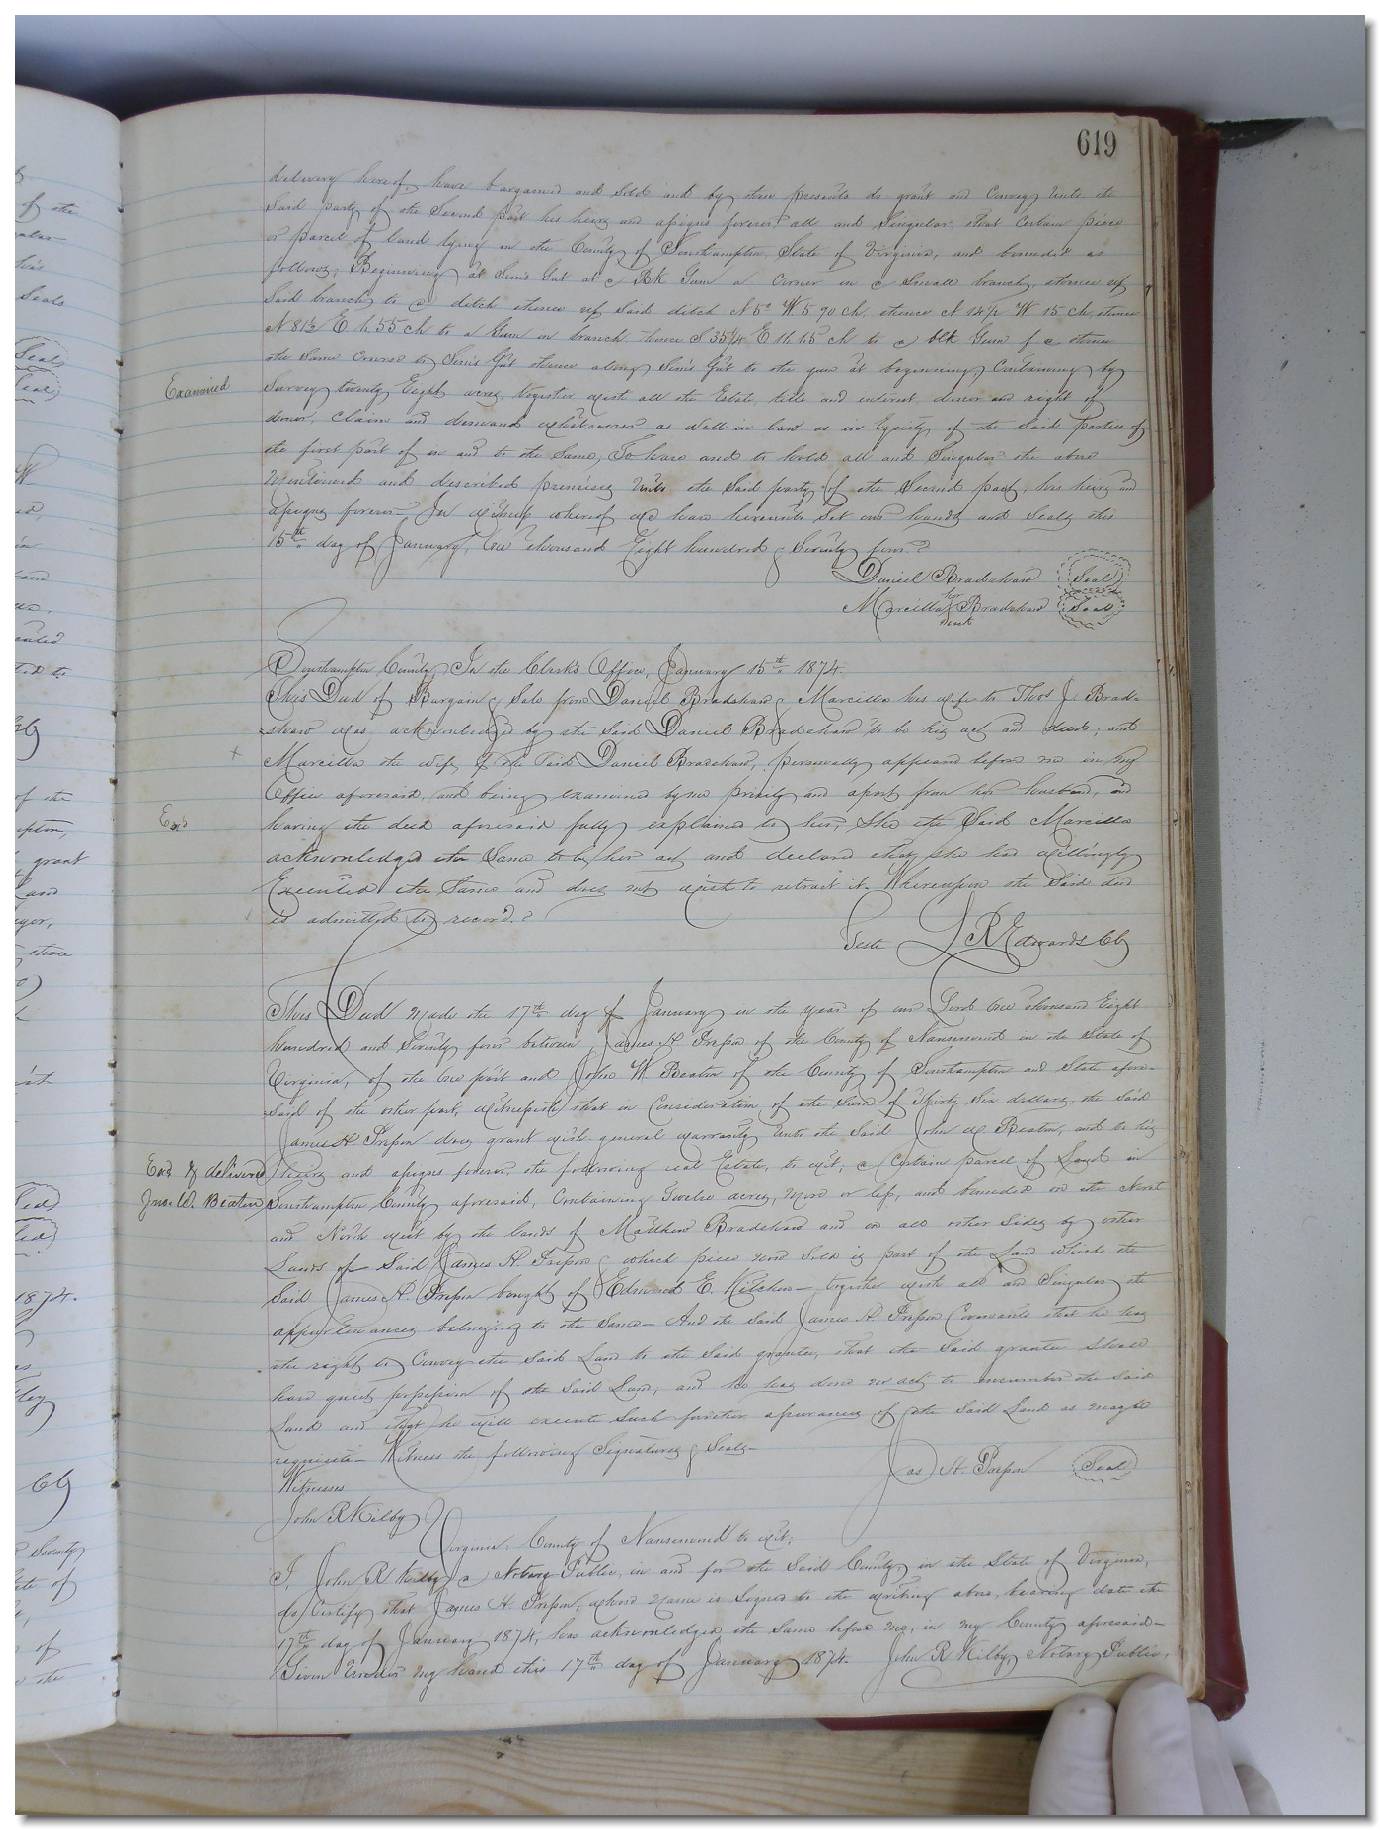 619
delivery hereof have bargained and sold and by these presents do grant and Convey unto the
said party of the Second part his heirs and assigns forever all and Singular that Certain piece
or parcel of land lying in the County of Southampton State of Virginia, and bounded as
follows; Beginning at Sim's Gut at a Blk Gum a corner in a Small branch, thence up
said branch to a ditch thence up said ditch N 5° W 5 90 ch, thence N 14½ W 15 ch thence
N 81½ E 4.55 ch to a Gum in branch thence S 35¼ E 16 65 ch to a blk Gum thence
the Same Course to Sim's Gut thence along Sim's Gut to the gum at beginning, Containing by
Examined
Survey twenty Eight acres, together with all the Estate, title and interest, dower and right of
dower, Claim and demand whatsoever as well in law as in Equity of the said parties of
the first part of in and to the same, To have and to hold all and Singular the above
Mentioned and described premises unto the said party of the Second part, his heirs and
assigns forever— In witness whereof we have hereunto Set our hands and seals this
15th day of January, One thousand Eight hundred & Seventy four.
Daniel Bradshaw (Seal)
her
Marcilla Bradshaw (Seal)
mark
Southampton County, In the Clerk's Office, January 15th 1874.
This Deed of Bargain & Sale from Daniel Bradshaw & Marcilla his wife to Thos J. Brad-
shaw was acknowledged by the said Daniel Bradshaw to be his act and deed, and
Marcilla the wife of the said Daniel Bradshaw, personally appeared before me in my
Office aforesaid, and being examined by me privily and apart from her husband, and
Exd
having the deed aforesaid fully explained to her, She the Said Marcilla
acknowledged the Same to be her act and declared that she had willingly
Executed the Same and does not wish to retract it. Whereupon the Said deed
is admitted to record.
Teste L R Edwards Clk
This Deed made the 17th day of January in the year of our Lord One thousand Eight
hundred and Seventy four between James H. Presson of the County of Nansemond in the State of
Virginia, of the One part and John W. Beaton of the County of Southampton and State afore-
said of the other part, witnesseth that in Consideration of the Sum of Thirty Six dollars, the said
James H Presson does grant with general warranty unto the said John W Beaton, and to his
Exd & delivered
heirs and assigns forever, the following real Estate, to wit, a Certain parcel of Land in
Jno. W. Beaton
Southampton County aforesaid, Containing Twelve acres, more or less, and bounded on the West
and North West by the lands of Matthew Bradshaw and on all other Sides by other
Lands of Said James H. Presson & which piece now Sold is part of the Land which the
Said James H. Presson bought of Edmund E. Kitchen— together with all and Singular the
appurtenances belonging to the Same— And the Said James H Presson Covenants that he has
the right to Convey the Said Land to the Said grantee, that the Said grantee Shall
have quiet possession of the Said Land, and he has done no act to encumber the said
Land and that he will execute Such further assurances of the Said Land as may be
requisite— Witness the following Signatures & Seals—
Witnesses
Jas. H. Presson (Seal)
John R Kilby
Virginia. County of Nansemond to wit.
I, John R Kilby a Notary Public, in and for the Said County, in the State of Virginia,
do Certify that James H. Presson, whose name is Signed to the writing above, bearing date the
17th day of January 1874, has acknowledged the Same before me, in my County aforesaid—
Given under my hand this 17th day of January 1874. John R Kilby Notary Public,